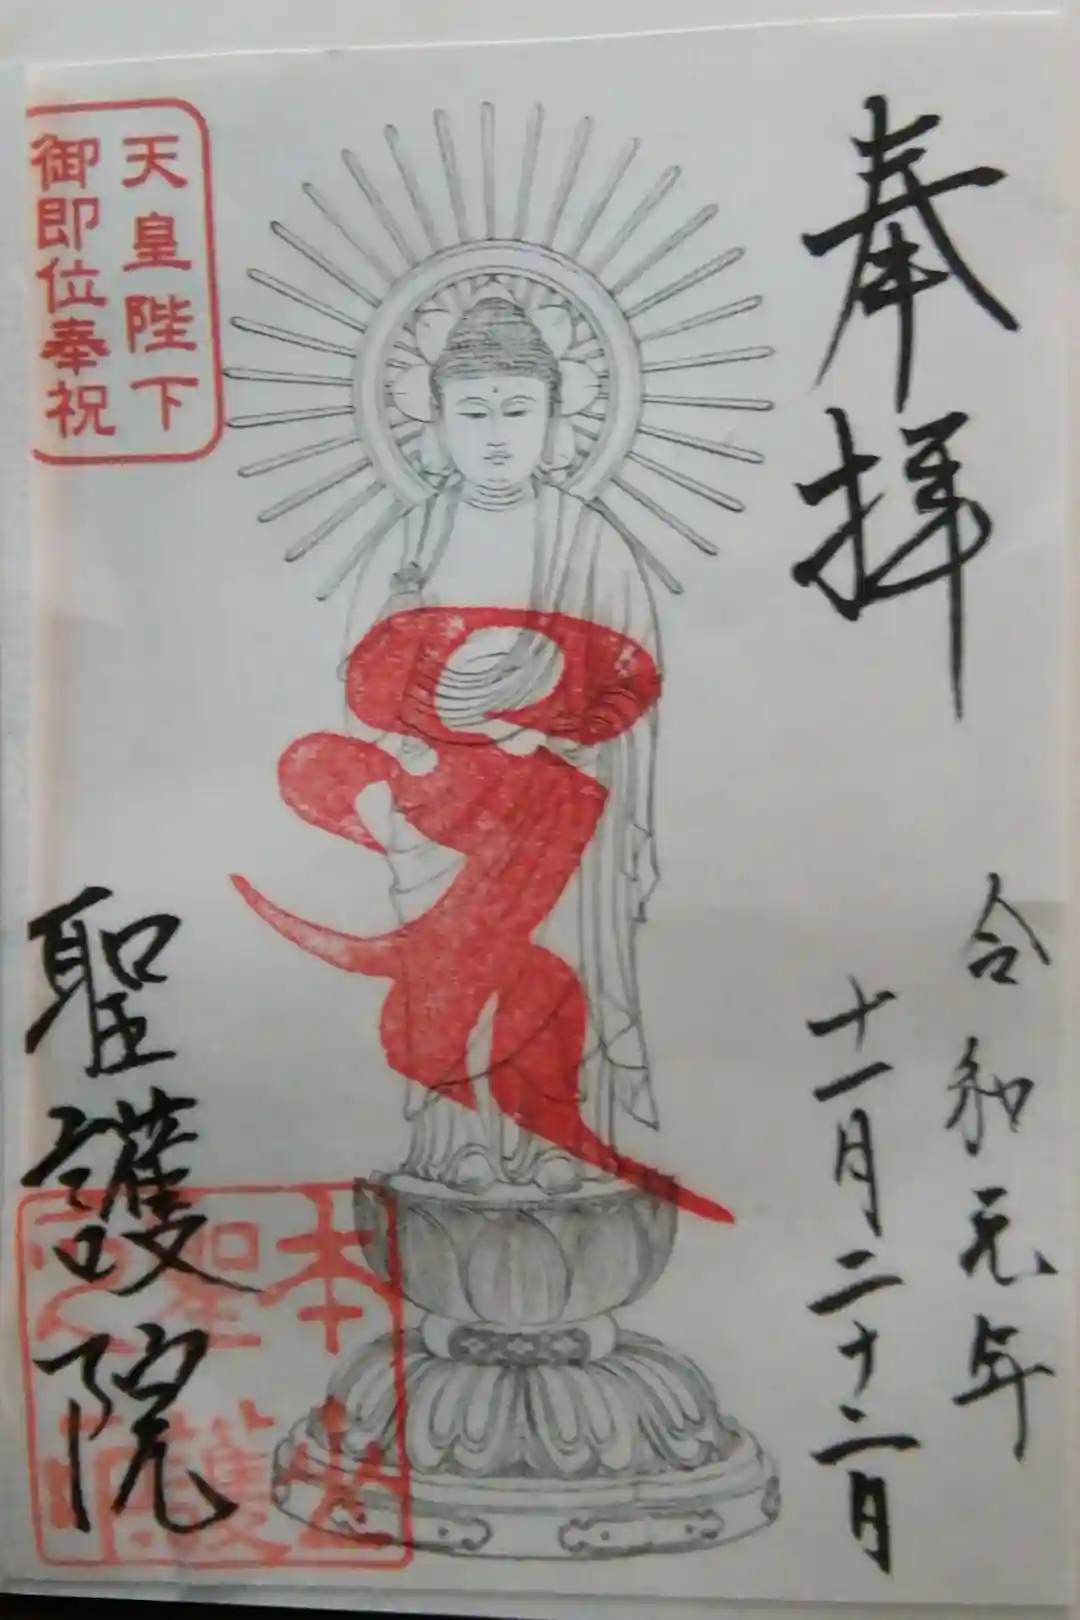 奉拝
令和元年
十一月二十二日
天皇陛下
御即位奉祝
聖護院
本山
聖護